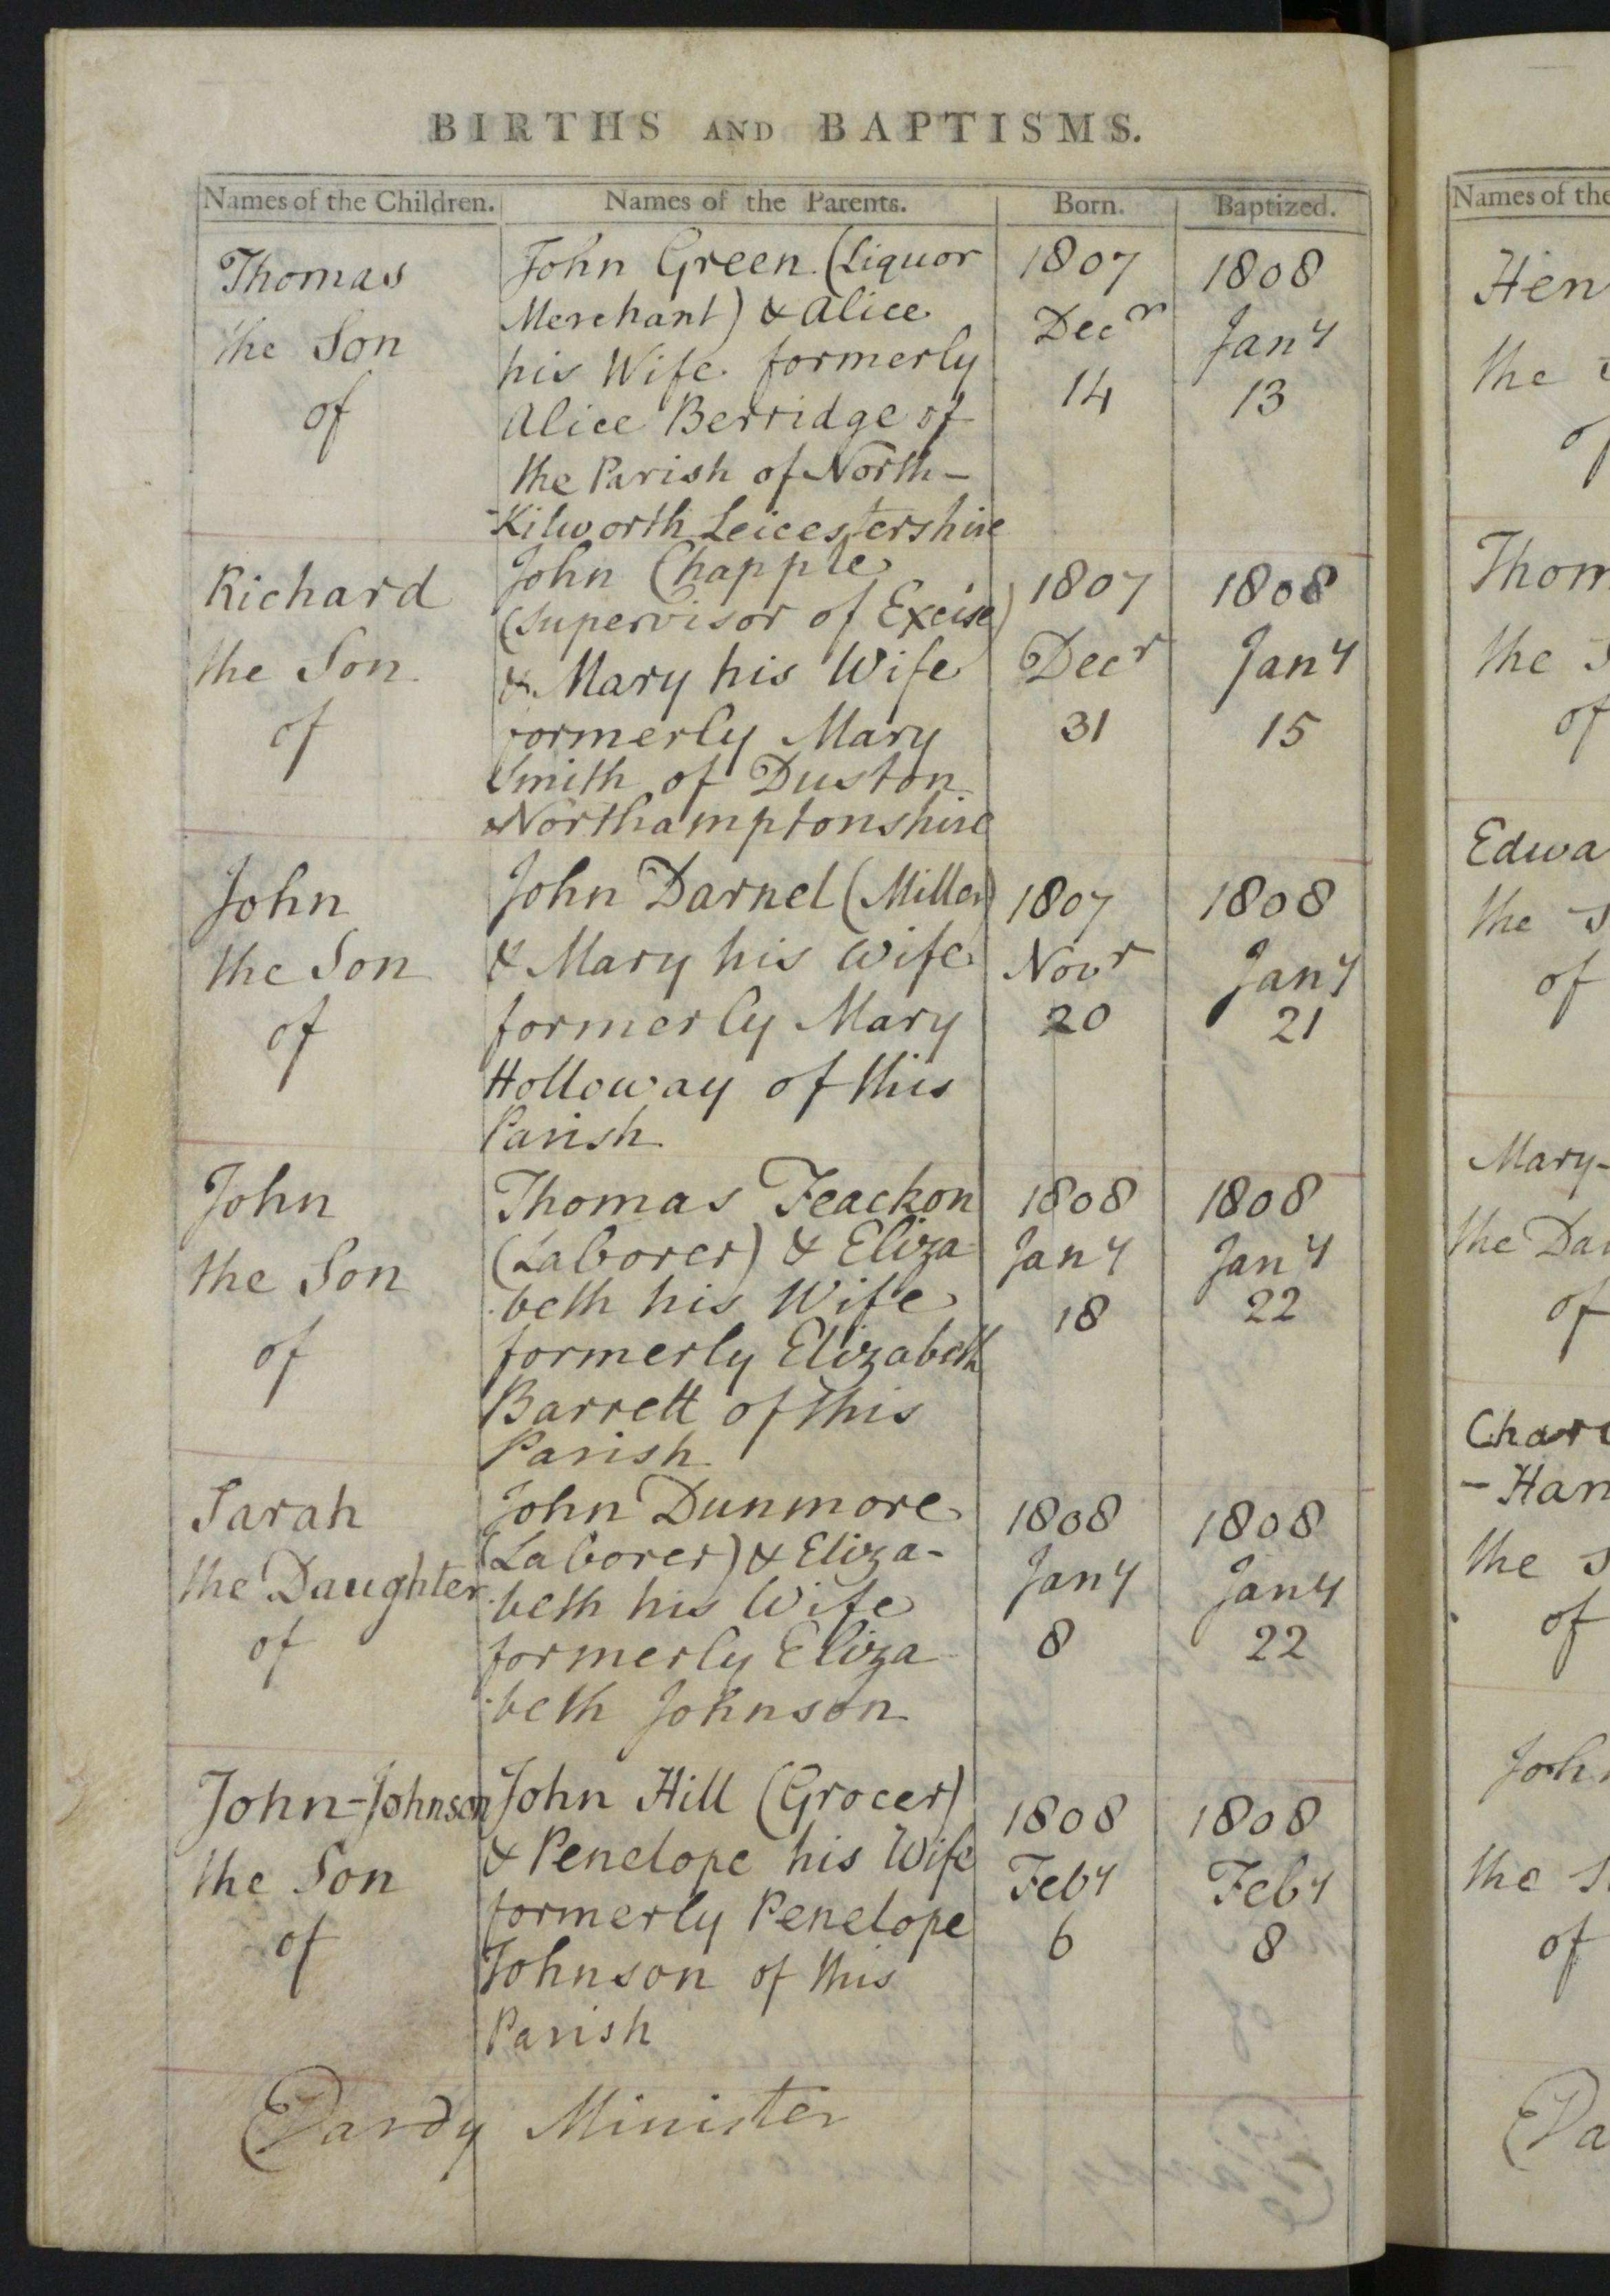 BIRTHS AND BAPTISMS.
Names of the Children. Names of the Parents. Born. Baptized.
Thomas
the Son
of
John Green (Liquor
Merchant) & Alice
his Wife formerly
Alice Berridge of
the Parish of North-
-Kilworth Leicestershire
1807
Decr
14
1808
Jany
13
Richard
the Son
of
John Chapple
(Supervisor of Excise)
& Mary his Wife
formerly Mary
Smith of Duston
Northamptonshire
1807
Decr
31
1808
Jany
15
John
the Son
of
John Darnel (Miller)
& Mary his Wife
formerly Mary
Holloway of this
Parish
1807
Novr
20
1808
Jany
21
John
the Son
of
Thomas Feackon
(Laborer) & Eliza-
-beth his Wife
formerly Elizabeth
Barrett of this
Parish
1808
Jany
18
1808
Jany
22
Sarah
the Daughter
of
John Dunmore
(Laborer) & Eliza-
-beth his Wife
formerly Eliza
-beth Johnson
1808
Jany
8
1808
Jany
22
John-Johnson
the Son
of
John Hill (Grocer)
& Penelope his Wife
formerly Penelope
Johnson of this
Parish
1808
Feby
6
1808
Feby
8
Minister
Names of the
Hen
the
of
Thom
the S
of
Edwa
the S
of
Mary-
the Dau
of
Charl
-Han
the S
of
John
the S
of